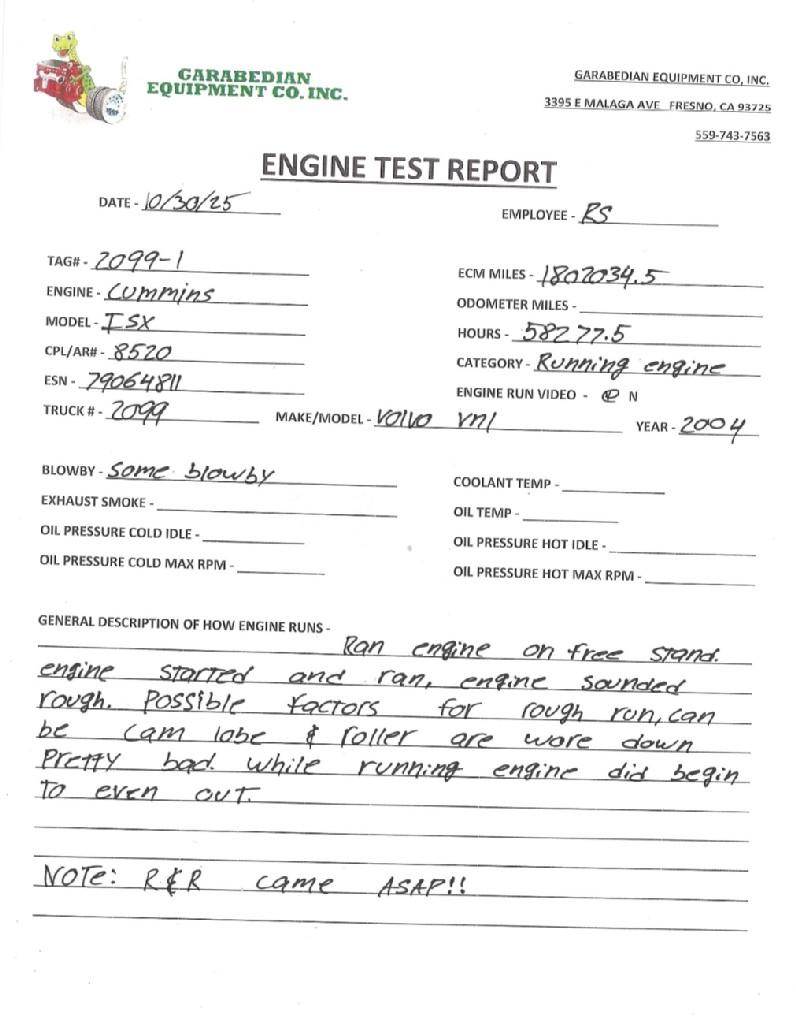 GARABEDIAN
EQUIPMENT CO. INC.
GARABEDIAN EQUIPMENT CO, INC.
3395 E MALAGA AVE FRESNO, CA 93725
559-743-7563
ENGINE TEST REPORT
DATE - 10/30/25
EMPLOYEE - RS
TAG# - 2099-1
ECM MILES - 1802034.5
ENGINE - Cummins
ODOMETER MILES -
MODEL - ISX
HOURS - 58277.5
CPL/AR# - 8520
CATEGORY - Running engine
ESN - 79064811
ENGINE RUN VIDEO - Y N
TRUCK # - 2099
MAKE/MODEL - Volvo vnl
YEAR - 2004
BLOWBY - some blowby
COOLANT TEMP -
EXHAUST SMOKE -
OIL TEMP -
OIL PRESSURE COLD IDLE -
OIL PRESSURE HOT IDLE -
OIL PRESSURE COLD MAX RPM -
OIL PRESSURE HOT MAX RPM -
GENERAL DESCRIPTION OF HOW ENGINE RUNS -
Ran engine on free stand.
engine started and ran, engine sounded
rough. Possible factors for rough run, can
be cam lobe & roller are wore down
Pretty bad. while running engine did begin
to even out.
NOTE: R&R came ASAP!!